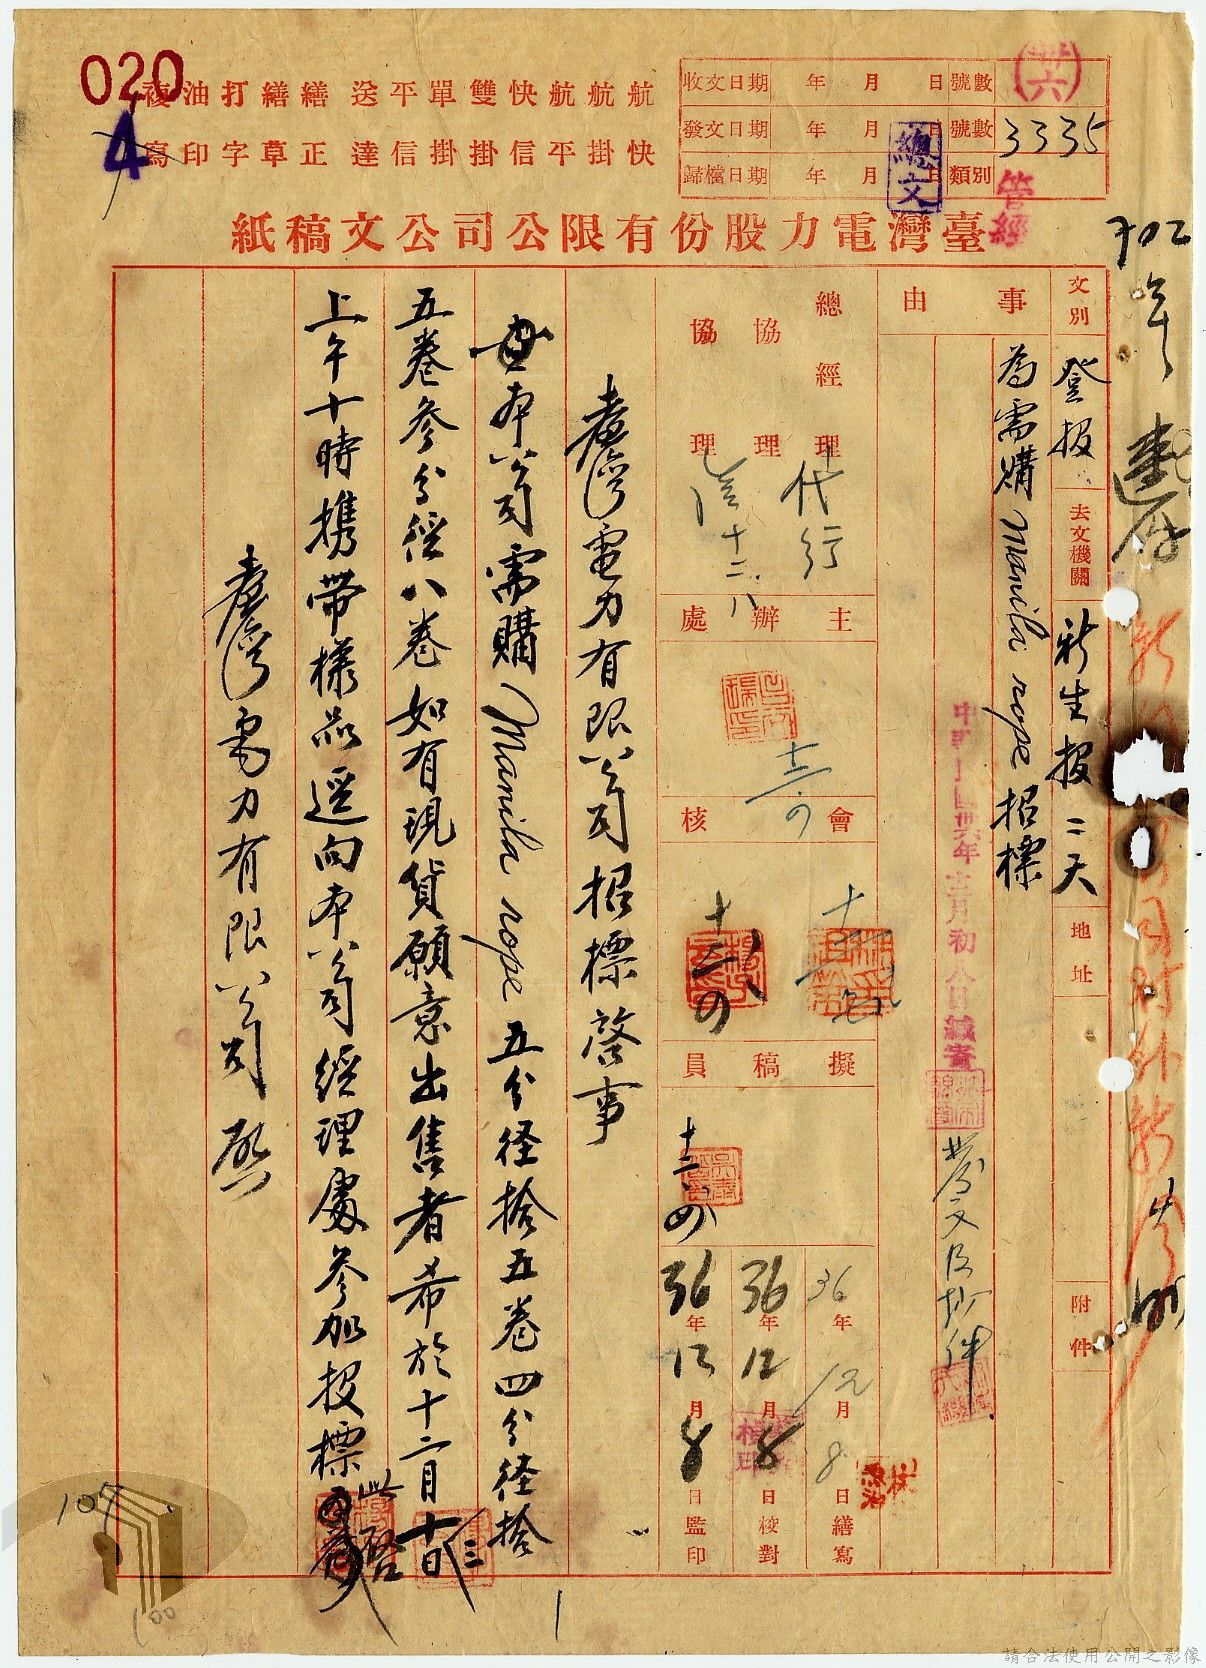 020
4
航快
航掛
航平
快信
雙掛
單掛
平信
送達
繕正
繕草
打字
油印
複寫
收文日期 年 月 日 號數
發文日期 年 月 日 號數 3335
歸檔日期 年 月 日 類別
總文
管經
臺灣電力股份有限公司公文稿紙
文別 登報 去文機關 新生報二天 地址 附件
事由 為需購 manila rope 招標
中華民國卅六年十二月初八日緘實
發文後抄件
總經理 代行
協理
協理
十二.八
主辦處
會核
擬稿員
36年12月8日繕寫
36年12月8日校對
36年12月8日監印
臺灣電力有限公司招標啓事
本公司需購 Manila rope 五分徑拾五卷四分徑拾
五卷參分徑八卷如有現貨願意出售者希於十二月十三日
上午十時携帶樣品逕向本公司經理處參加投標此啓
臺灣電力有限公司啟
107
100
請合法使用公開之影像